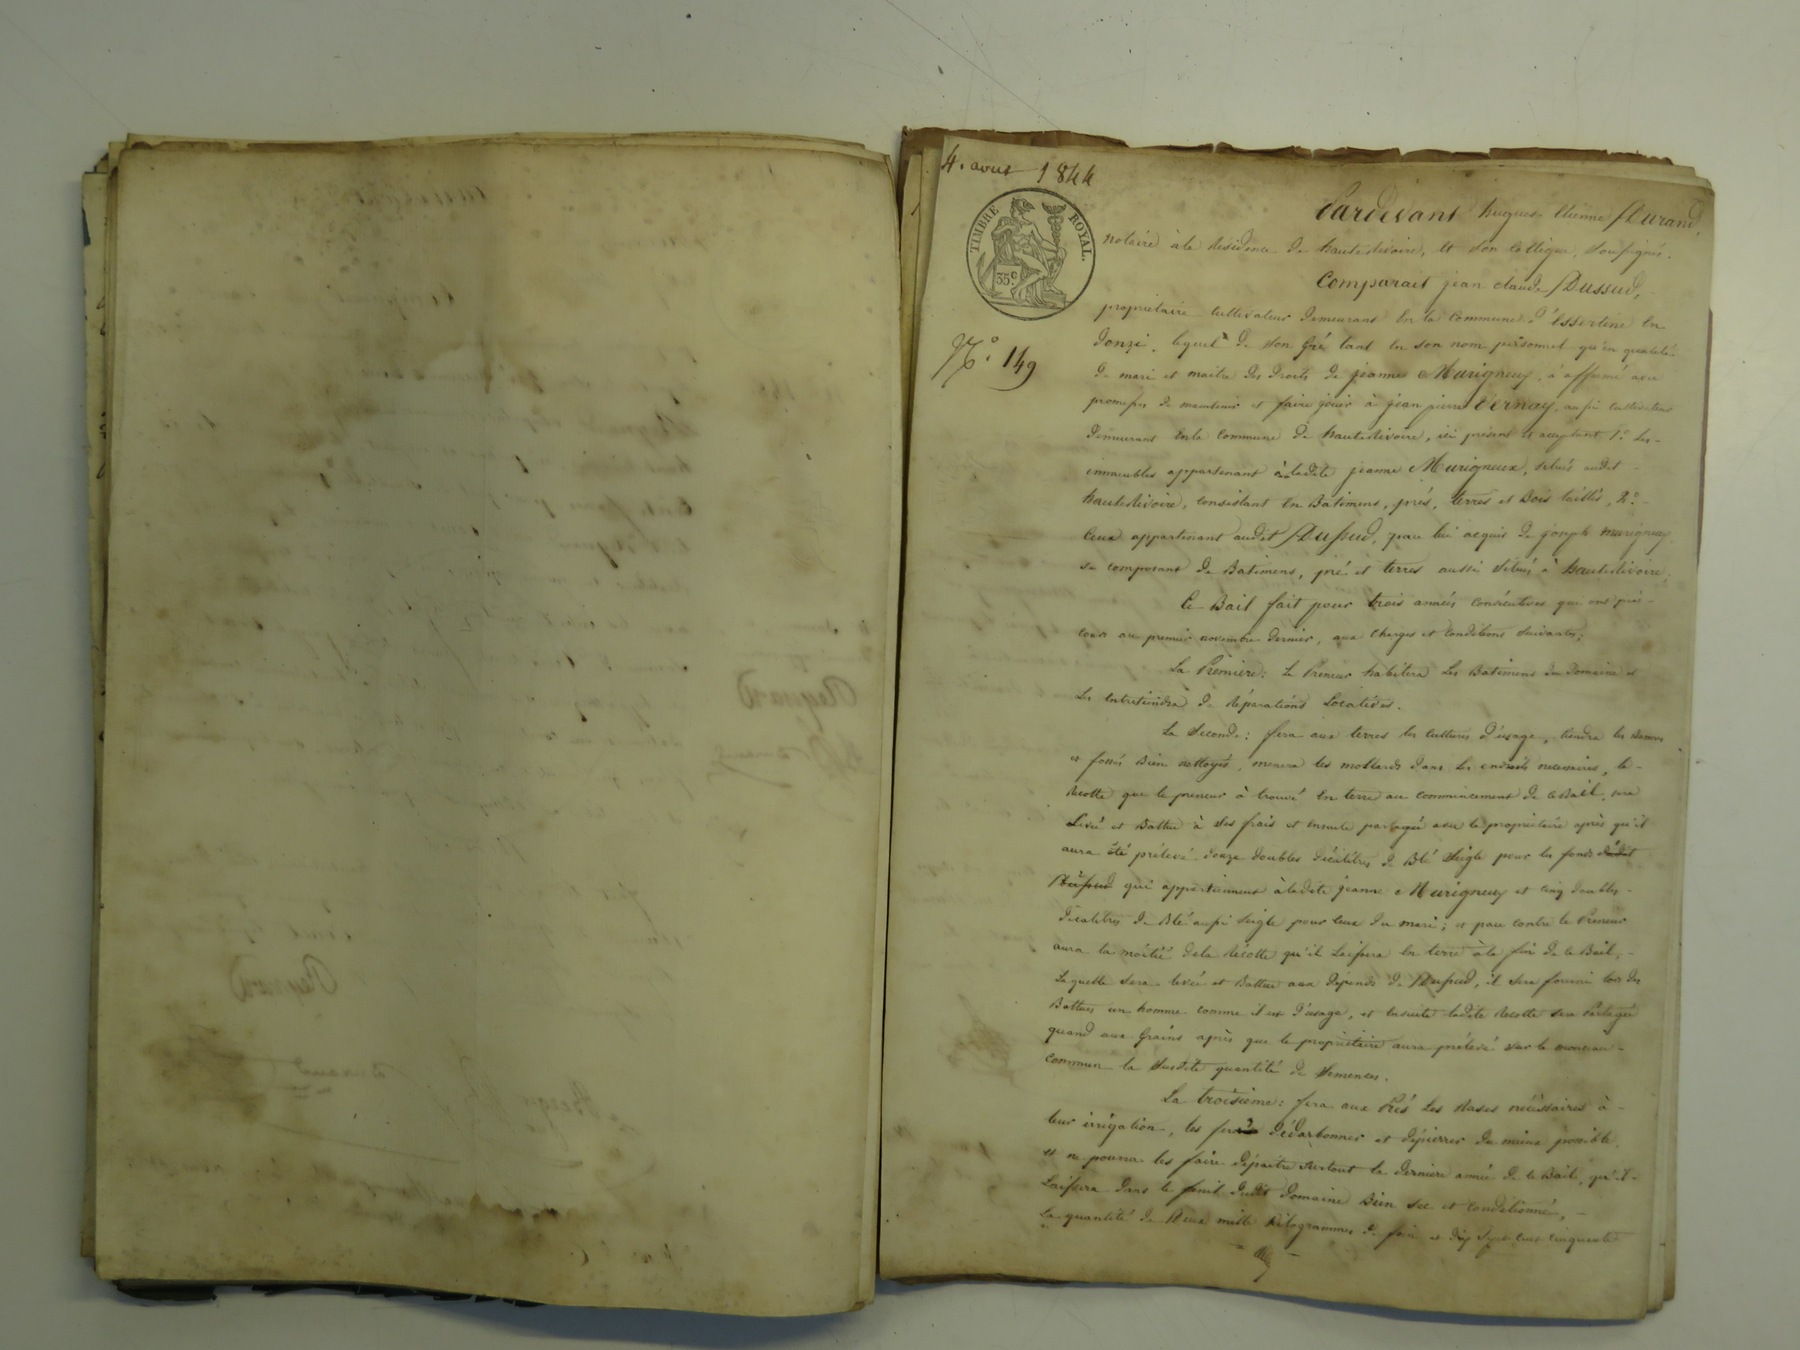 4. aout 1844
TIMBRE ROYAL.
35.c
N.o 149
Pardevant hugues Etienne Durand,
notaire à la residence de hauterivoire, et son collegue, soussignés.
Comparait jean claude Dussud,
propriétaire cultivateur demeurant en la commune d'essertine en
donzi, lequel de son gré tant en son nom personnel qu'en qualité
de mari et maitre des droits de jeanne Murigneux, à affermé avec
promesse de maintenir et faire jouir à jean pierre Vernay, aussi cultivateur
demeurant en la commune de hauterivoire, ici présent et acceptant 1.o Les
immeubles appartenant à ladite jeanne Murigneux, situés audit
hauterivoire, consistant en Batimens, prés, terres et Bois taillis, 2.o
Ceux appartenant audit Dussud, pour lui acquis de joseph murigneux,
se composant de Batimens, pré et terres aussi situés à hauterivoire.
Ce Bail fait pour trois années consécutives qui ont pris
cours au premier novembre dernier, aux charges et conditions suivantes:
La Première: Le Preneur habitera Les Batimens du domaine et
Les entretiendra de réparations Locatives.
La Seconde: fera aux terres les cultures d'usage, tiendra les
et fossés Bien nettoyés, menera les mollards dans Les endroits necessaires, la
Récolte que le preneur à trouvé En terre au commencement de ce Bail, sera
Levée et Battue à ses frais et ensuite partagée avec le propriétaire après qu'il
aura été prélevé douze doubles décalitres de Blé Seigle pour les fonds dudit
Dussud qui appartiennent à ladite jeanne Murigneux et cinq doubles
décalitres de Blé aussi Seigle pour ceux du mari; et par contre le Preneur
aura la moitié de la Récolte qu'il Laissera en terre à la fin de ce Bail,
Laquelle sera levée et Battue aux dépends de Dussud, il sera fourni lors des
Battues un homme comme il est d'usage, et ensuite ladite Récolte sera Partagée
quand aux Grains après que le propriétaire aura prélevé sur le monceau
commun la Susdite quantité de Semences.
La troisième: fera aux Prés Les Rases nécéssaires à
leur irrigation, les fera décharbonner et dépierrer du mieux possible,
et ne pourra les faire dépaitre surtout la dernière année de ce Bail, qu'il
Laissera dans le fenil dudit domaine Bien sec et conditionné,
La quantité de Deux mille Kilogrammes de foin et dix sept cent cinquante